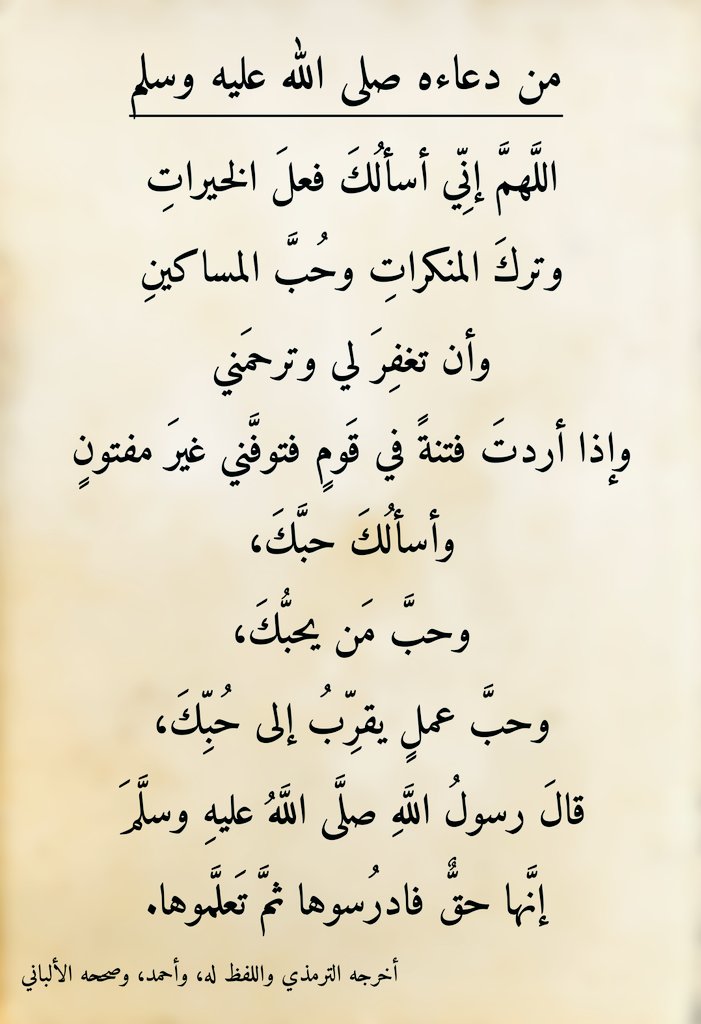 من دعاءه صلى الله عليه وسلم
اللَّهمَّ إنِّي أسألُكَ فعلَ الخيراتِ
وتركَ المنكراتِ وحُبَّ المساكينِ
وأن تغفِرَ لي وترحمَني
وإذا أردتَ فتنةً في قَومٍ فتوفَّني غيرَ مفتونٍ
وأسألُكَ حبَّكَ،
وحبَّ مَن يحبُّكَ،
وحبَّ عملٍ يقرِّبُ إلى حُبِّكَ،
قالَ رسولُ اللَّهِ صلَّى اللَّهُ عليهِ وسلَّمَ
إنَّها حقٌّ فادرُسوها ثمَّ تَعلَّموها.
أخرجه الترمذي واللفظ له، وأحمد، وصححه الألباني